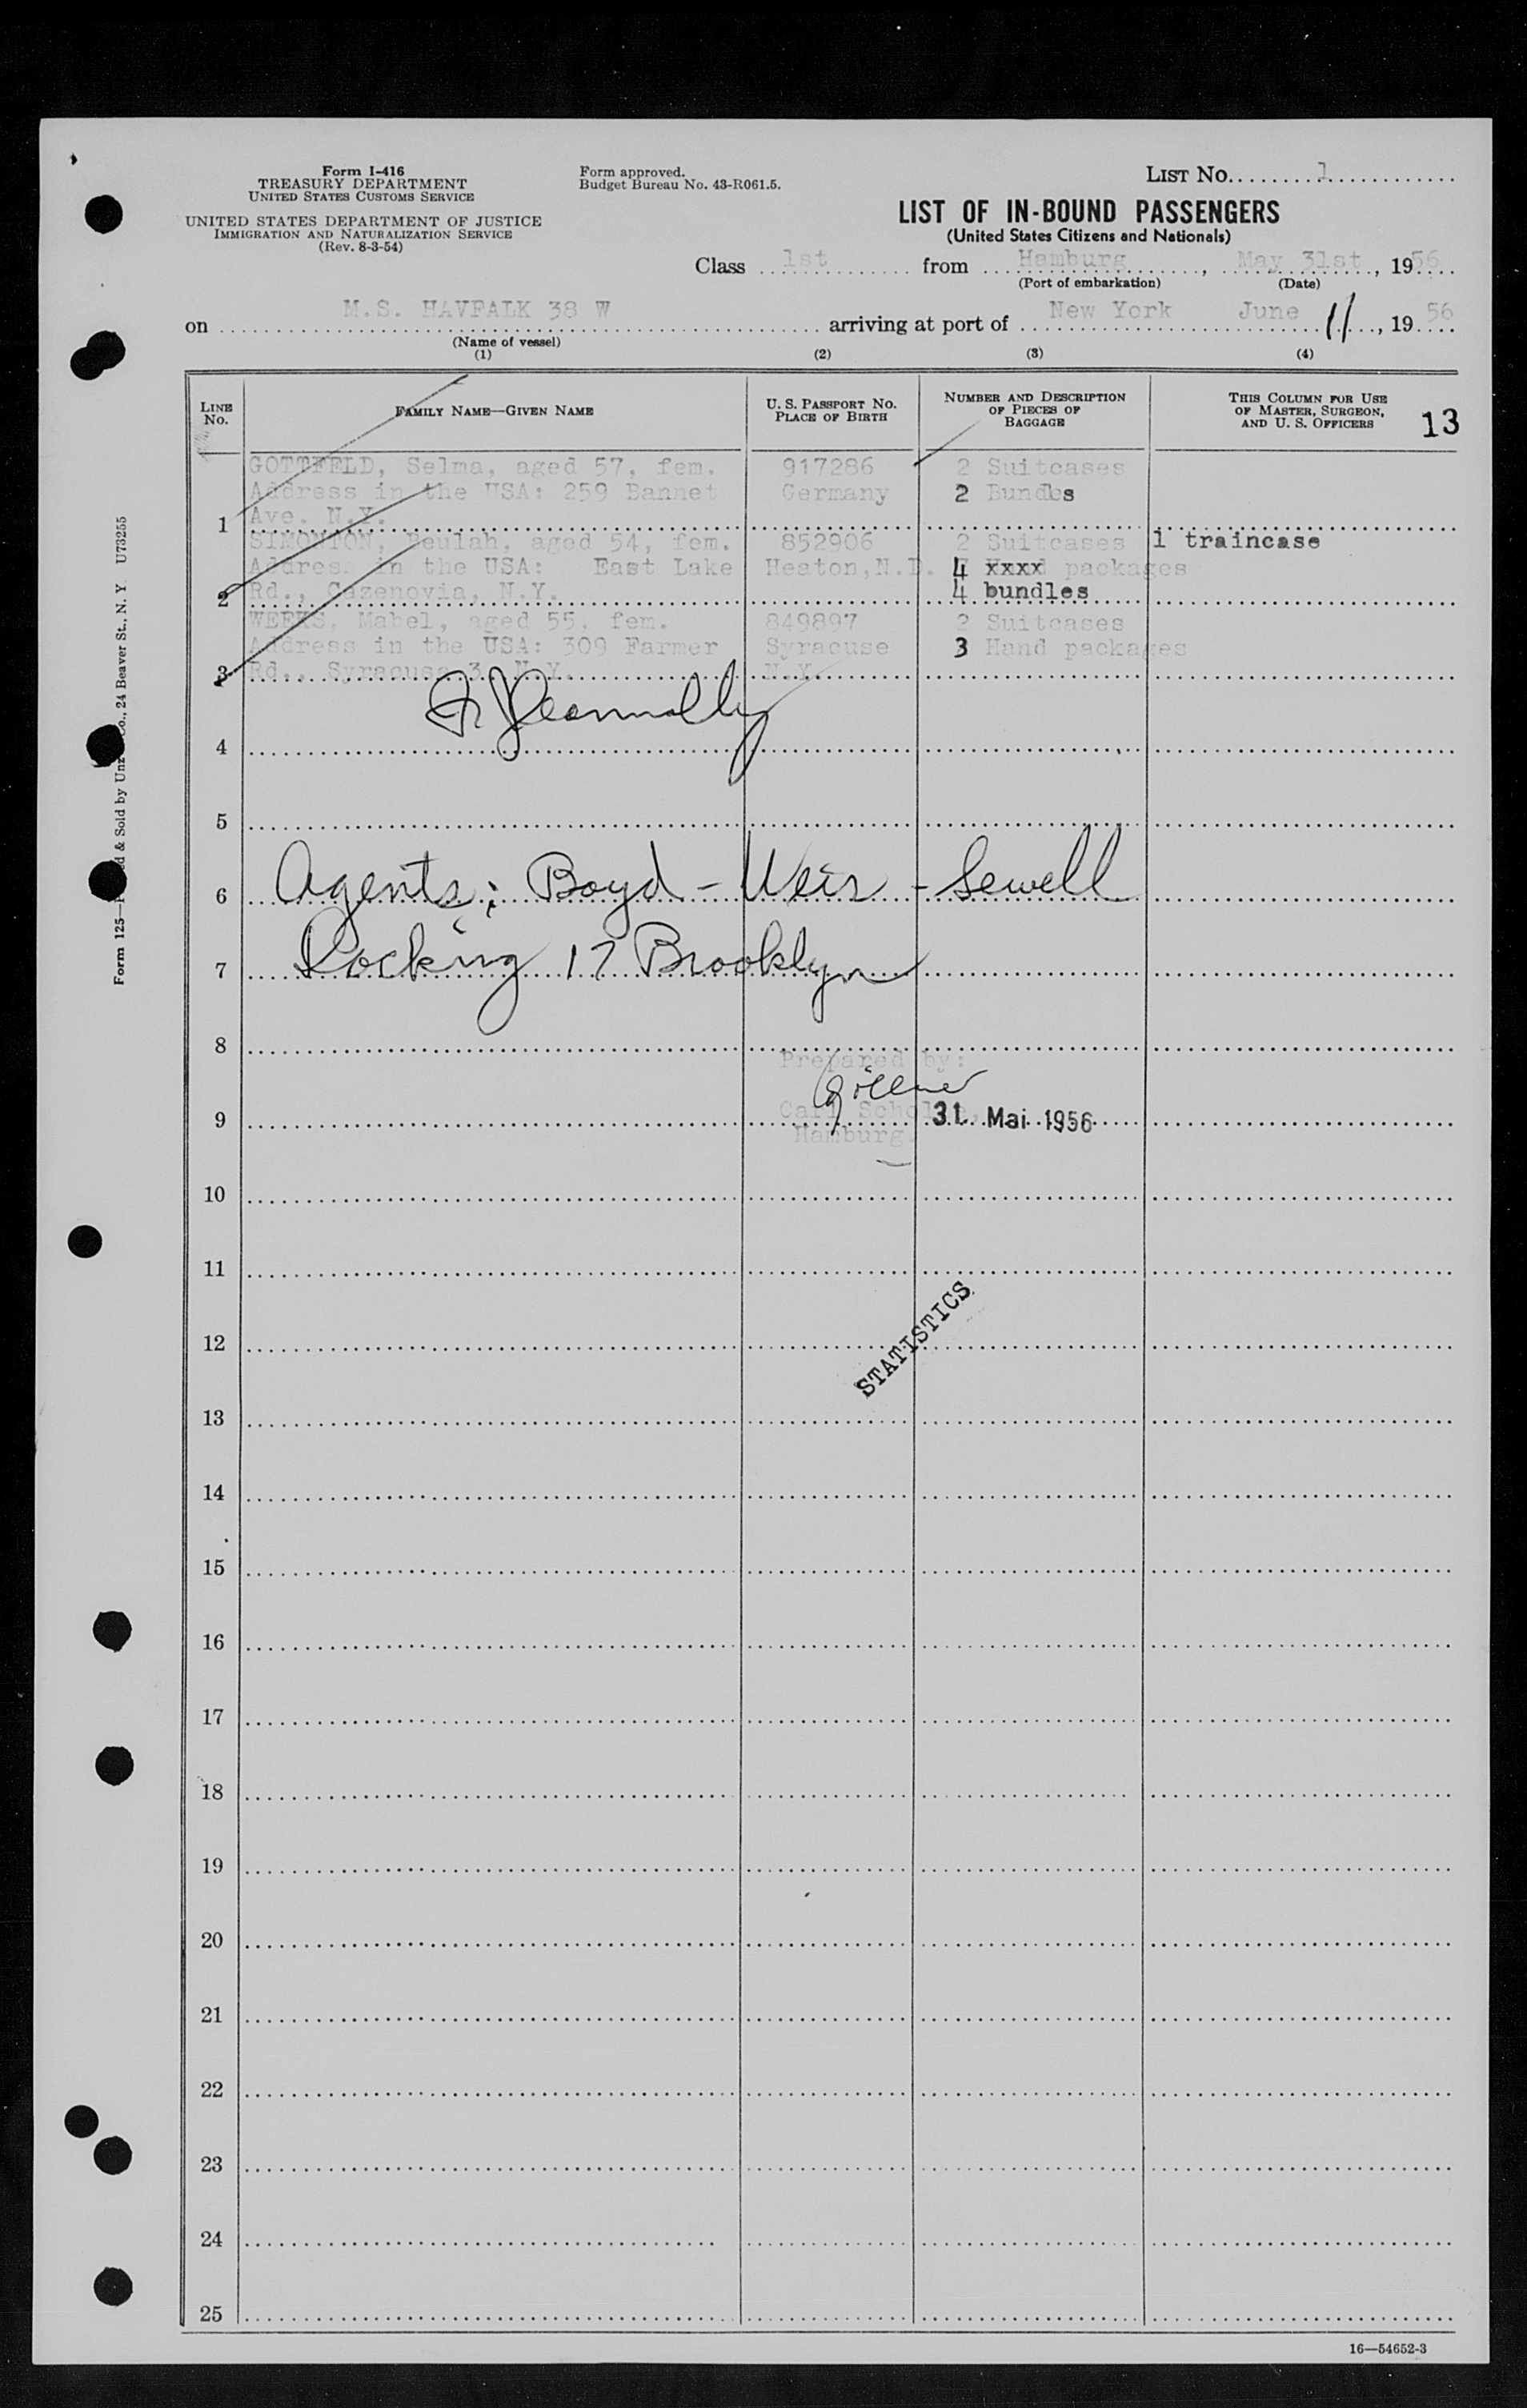 Form I-416
TREASURY DEPARTMENT
UNITED STATES CUSTOMS SERVICE
UNITED STATES DEPARTMENT OF JUSTICE
IMMIGRATION AND NATURALIZATION SERVICE
(Rev. 8-3-54)
Form approved.
Budget Bureau No. 43-R061.5.
LIST NO. 1
LIST OF IN-BOUND PASSENGERS
(United States Citizens and Nationals)
Class 1st from Hamburg, May 31st, 1956
(Port of embarkation) (Date)
on M.S. HAVFALK 38 W arriving at port of New York June 11, 1956
(Name of vessel)
(1) (2) (3) (4)
LINE NO. FAMILY NAME—GIVEN NAME U. S. PASSPORT NO. PLACE OF BIRTH NUMBER AND DESCRIPTION OF PIECES OF BAGGAGE THIS COLUMN FOR USE OF MASTER, SURGEON, AND U. S. OFFICERS 13
GOTTFELD, Selma, aged 57, fem. 917286 2 Suitcases
Address in the USA: 259 Bannet Germany 2 Bundes
1 Ave. N.Y.
SIMONTON, Beulah, aged 54, fem. 852906 2 Suitcases 1 traincase
Addres. in the USA: East Lake Heaton, N.D. 4 xxxx packages
2 Rd., Cazenovia, N.Y. 4 bundles
WEEKS, Mabel, aged 55, fem. 849897 2 Suitcases
Address in the USA: 309 Farmer Syracuse 3 Hand packages
3 Rd., Syracuse 3, N.Y. N.Y.
4
5
6 Agents: Boyd-Weir-Sewell
7 Docking 17 Brooklyn
8
Prepared by:
9 Carl Scholz, 31. Mai 1956
Hamburg
10
11
STATISTICS
12
13
14
15
16
17
18
19
20
21
22
23
24
25
16—54652-3
Co., 24 Beaver St., N. Y U73255
Form 125— & Sold by